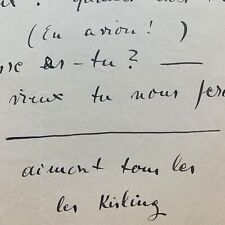 (En avion! )
es-tu? —
vieux tu nous
aimont tous les
les Kisling